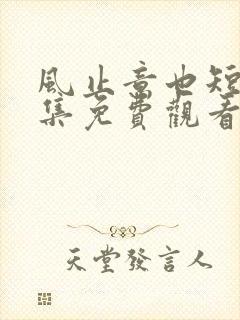 風止意也短
集免費觀看
天堂發言人